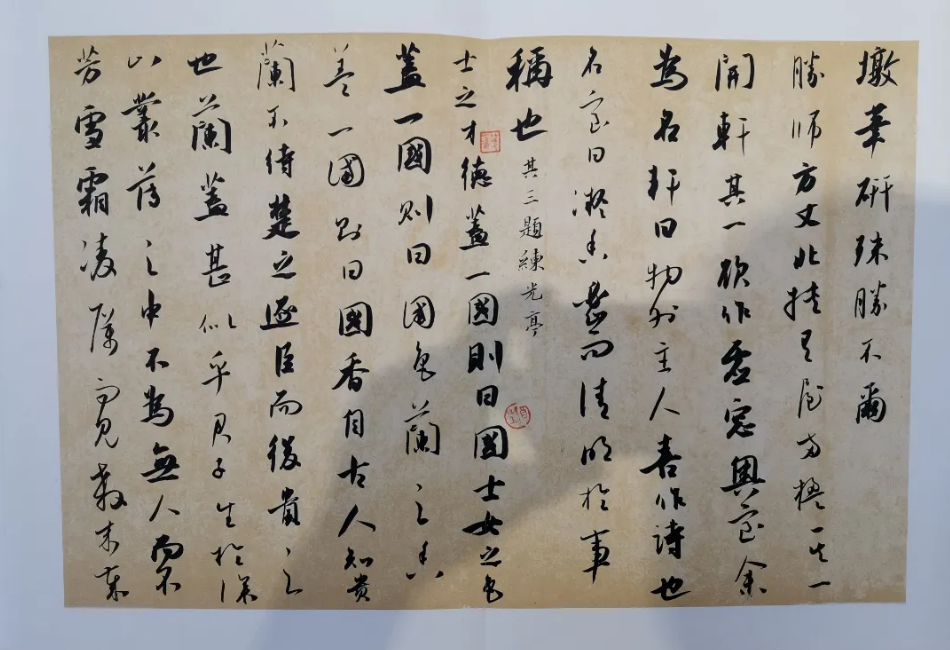 墩筆研殊勝不爾
勝師方丈北挾有屋兩楹其一
開軒其一欲作虛窓奧室余
為名軒曰物外主人喜作詩也
名室曰凝香密而清明於事
稱也 其三題練光亭
士之才德蓋一國則曰國士女之色
蓋一國則曰國色蘭之香
蓋一國則曰國香自古人知貴
蘭不待楚之逐臣而後貴之
也蘭蓋甚似乎君子生於深
山叢薄之中不為無人而不
芳雪霜凌厲而見殺来歲